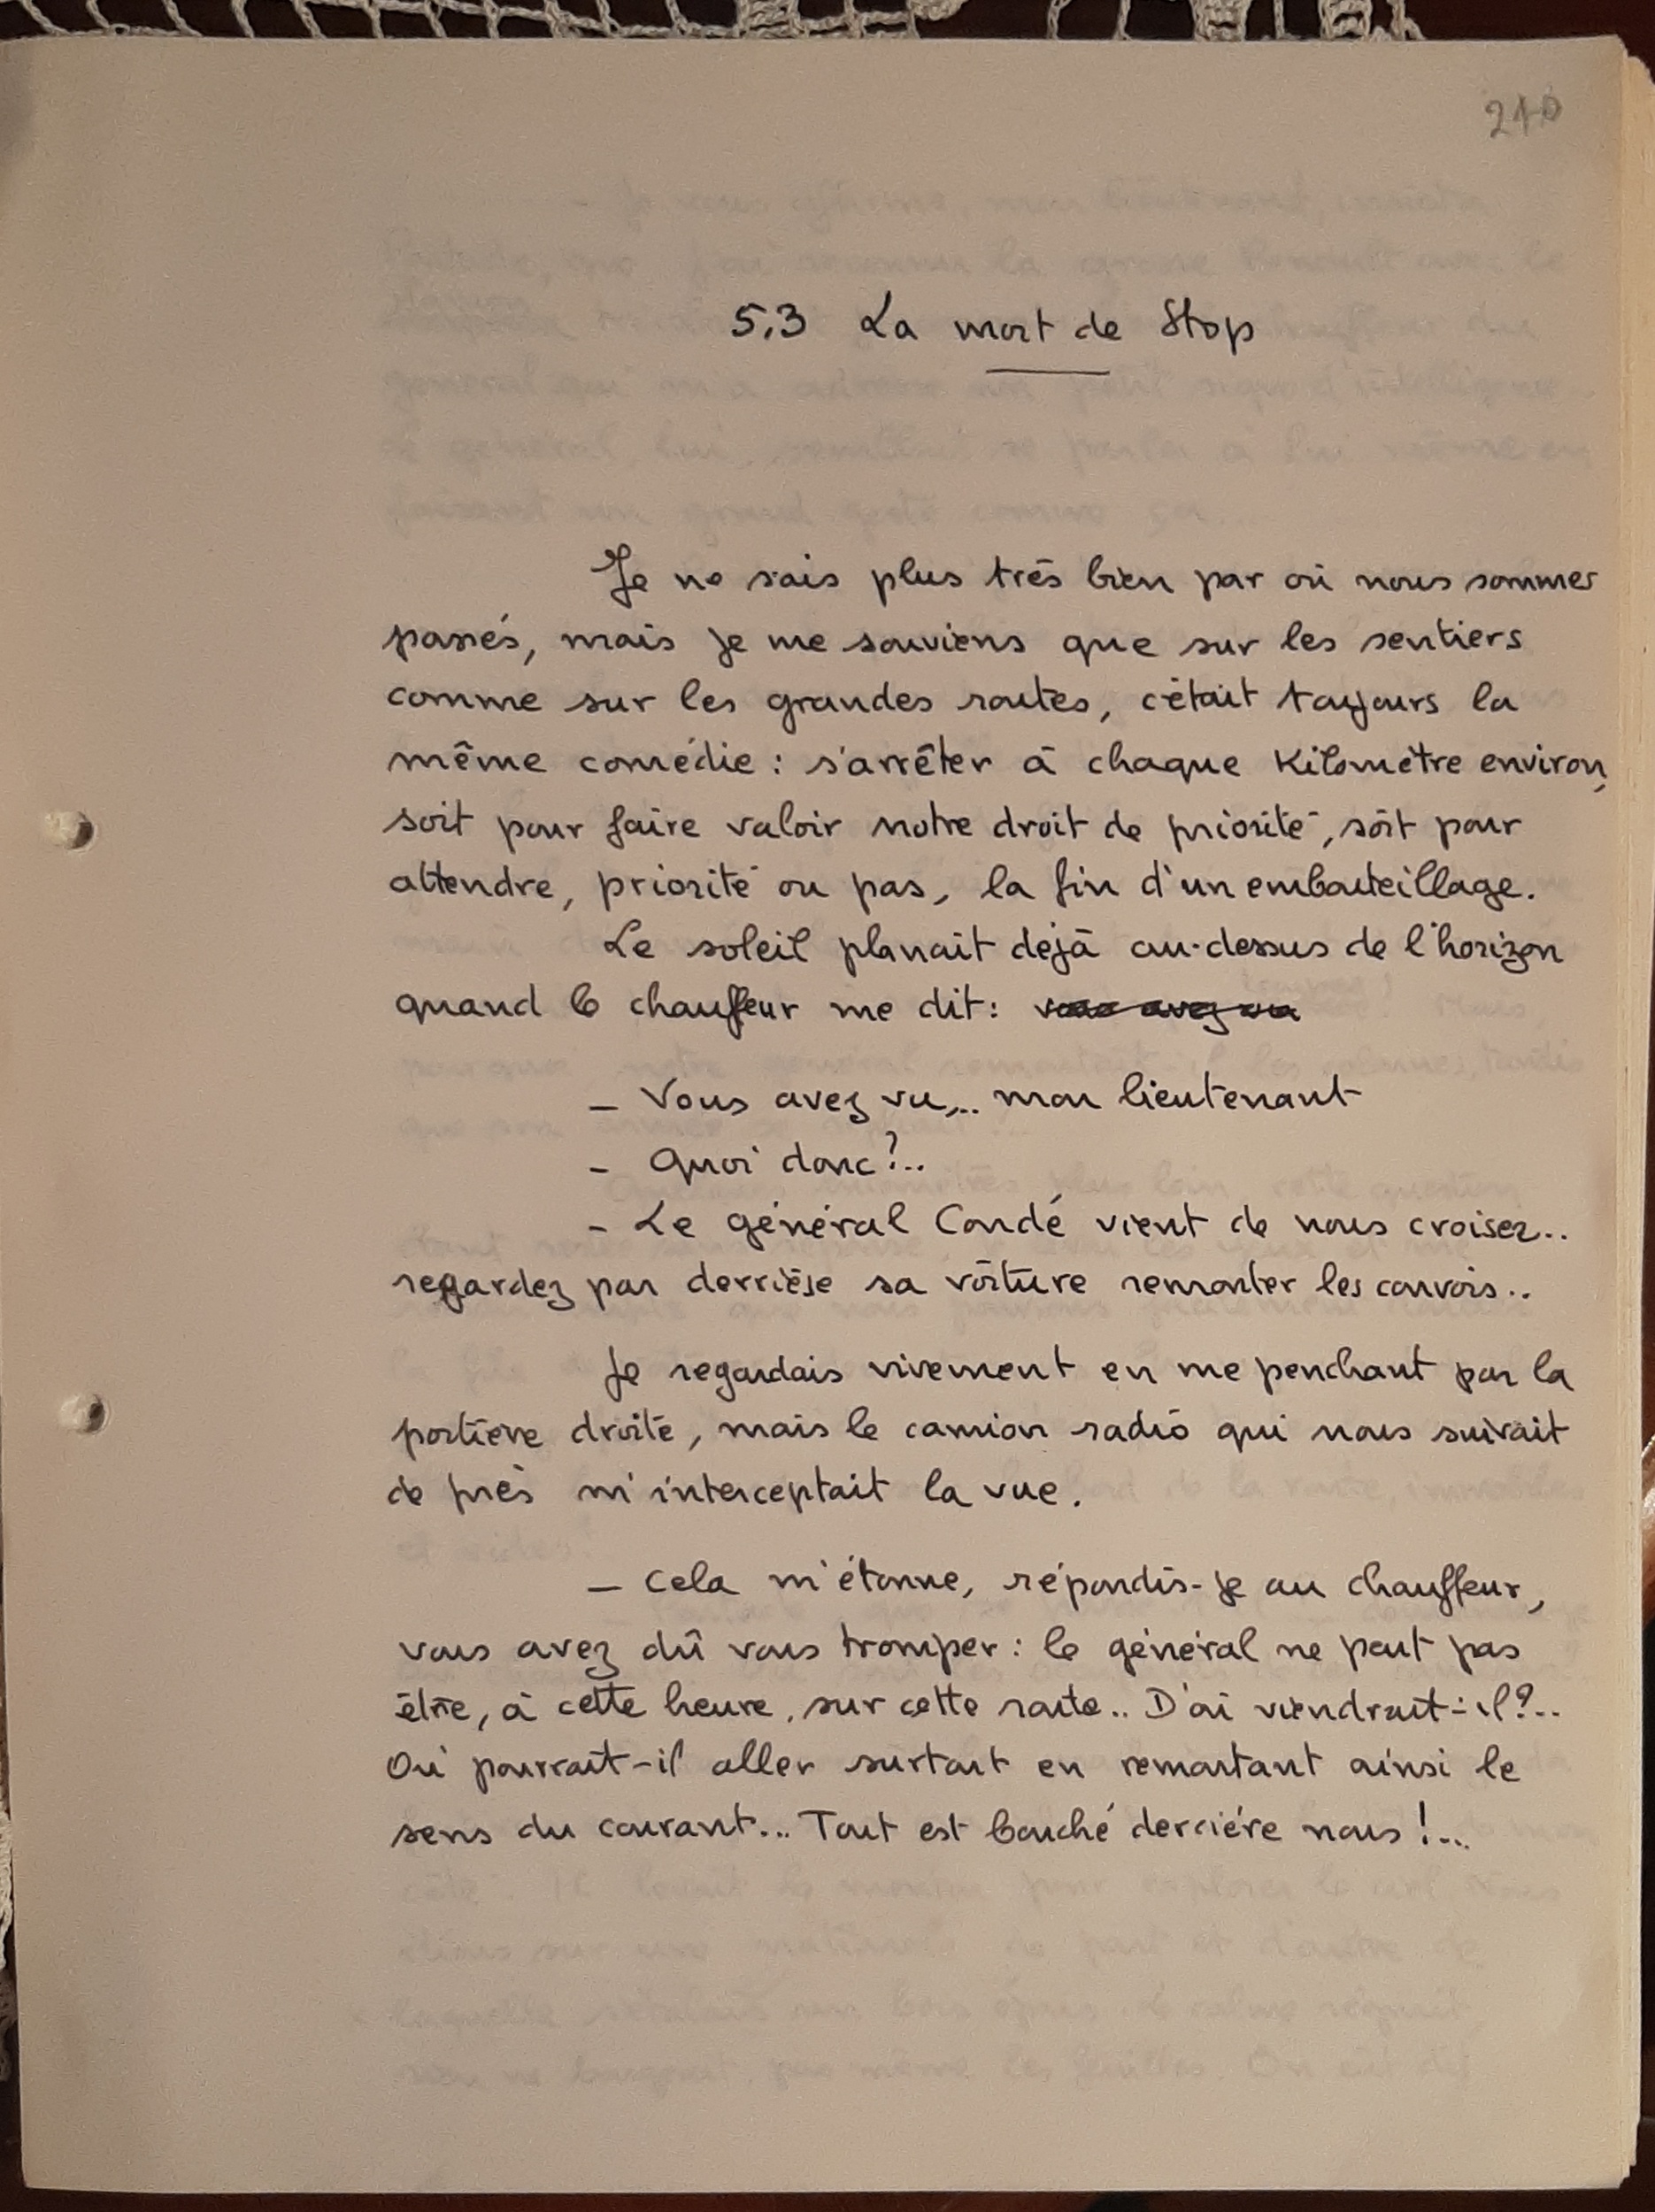 210
5.3 La mort de Stop
Je ne sais plus très bien par où nous sommes
passés, mais je me souviens que sur les sentiers
comme sur les grandes routes, c'était toujours la
même comédie : s'arrêter à chaque kilomètre environ,
soit pour faire valoir notre droit de priorité, soit pour
attendre, priorité ou pas, la fin d'un embouteillage.
Le soleil planait déjà au-dessus de l'horizon
quand le chauffeur me dit : vous avez vu
- Vous avez vu... mon lieutenant
- Quoi donc ?..
- Le général Condé vient de nous croiser..
regardez par derrière sa voiture remonter les convois..
Je regardais vivement en me penchant par la
portière droite, mais le camion radio qui nous suivait
de près m'interceptait la vue.
- Cela m'étonne, répondis-je au chauffeur,
vous avez dû vous tromper : le général ne peut pas
être, à cette heure, sur cette route.. D'où viendrait-il ?..
Où pourrait-il aller surtout en remontant ainsi le
sens du courant... Tout est bouché derrière nous !...